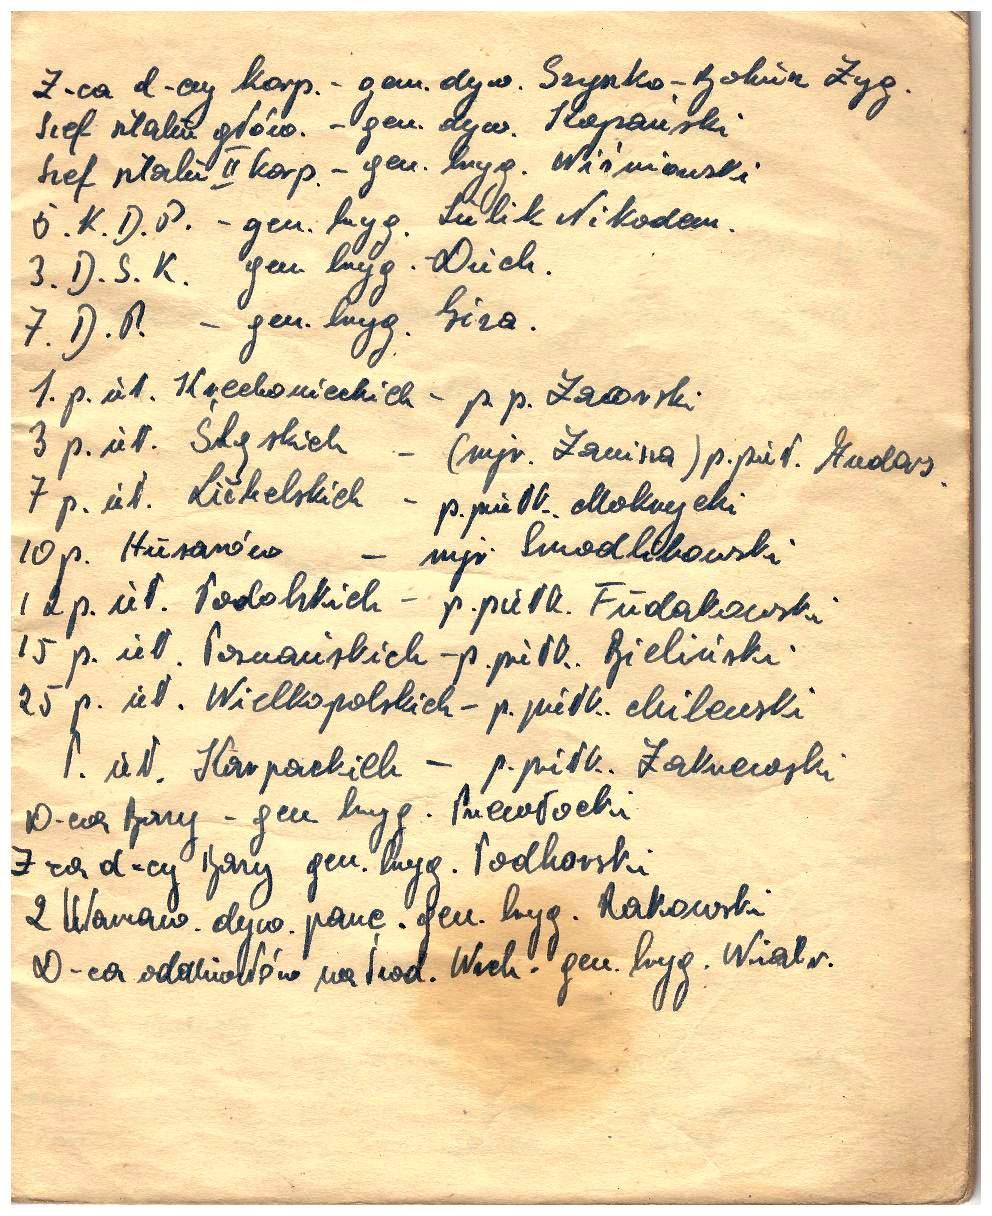 Z-ca d-cy korp. - gen. dyw. Szyszko-Bohun Zyg.
Szef sztabu głów. - gen. dyw. Kopański
Szef sztabu II korp. - gen. bryg. Wiśniowski
5. K. D. P. - gen. bryg. Sulik Nikodem.
3. D. S. K. gen. bryg. Duch.
7. D. P. - gen. bryg. Giza.
1. p. uł. Krechowieckich - p. p. Zaorski
3 p. uł. Śląskich - (mjr. Zanissa) p. pułk.
7 p. uł. Lubelskich - p. pułk. Mokrzycki
10 p. Huzarów - mjr. Smodlibowski
12 p. uł. Podolskich - p. pułk. Fudakowski
15 p. uł. Poznańskich - p. pułk. Bieliński
25 p. uł. Wielkopolskich - p. pułk. Milewski
P. uł. Karpackich - p. pułk. Zakrzewski
D-ca Bazy - gen bryg. Przewłocki
Z-ca d-cy Bazy gen. bryg. Podhorski
2 Warszaw. dyw. panc. gen. bryg. Rakowski
D-ca oddziałów na Środ. Wsch. gen. bryg. Wiatr.